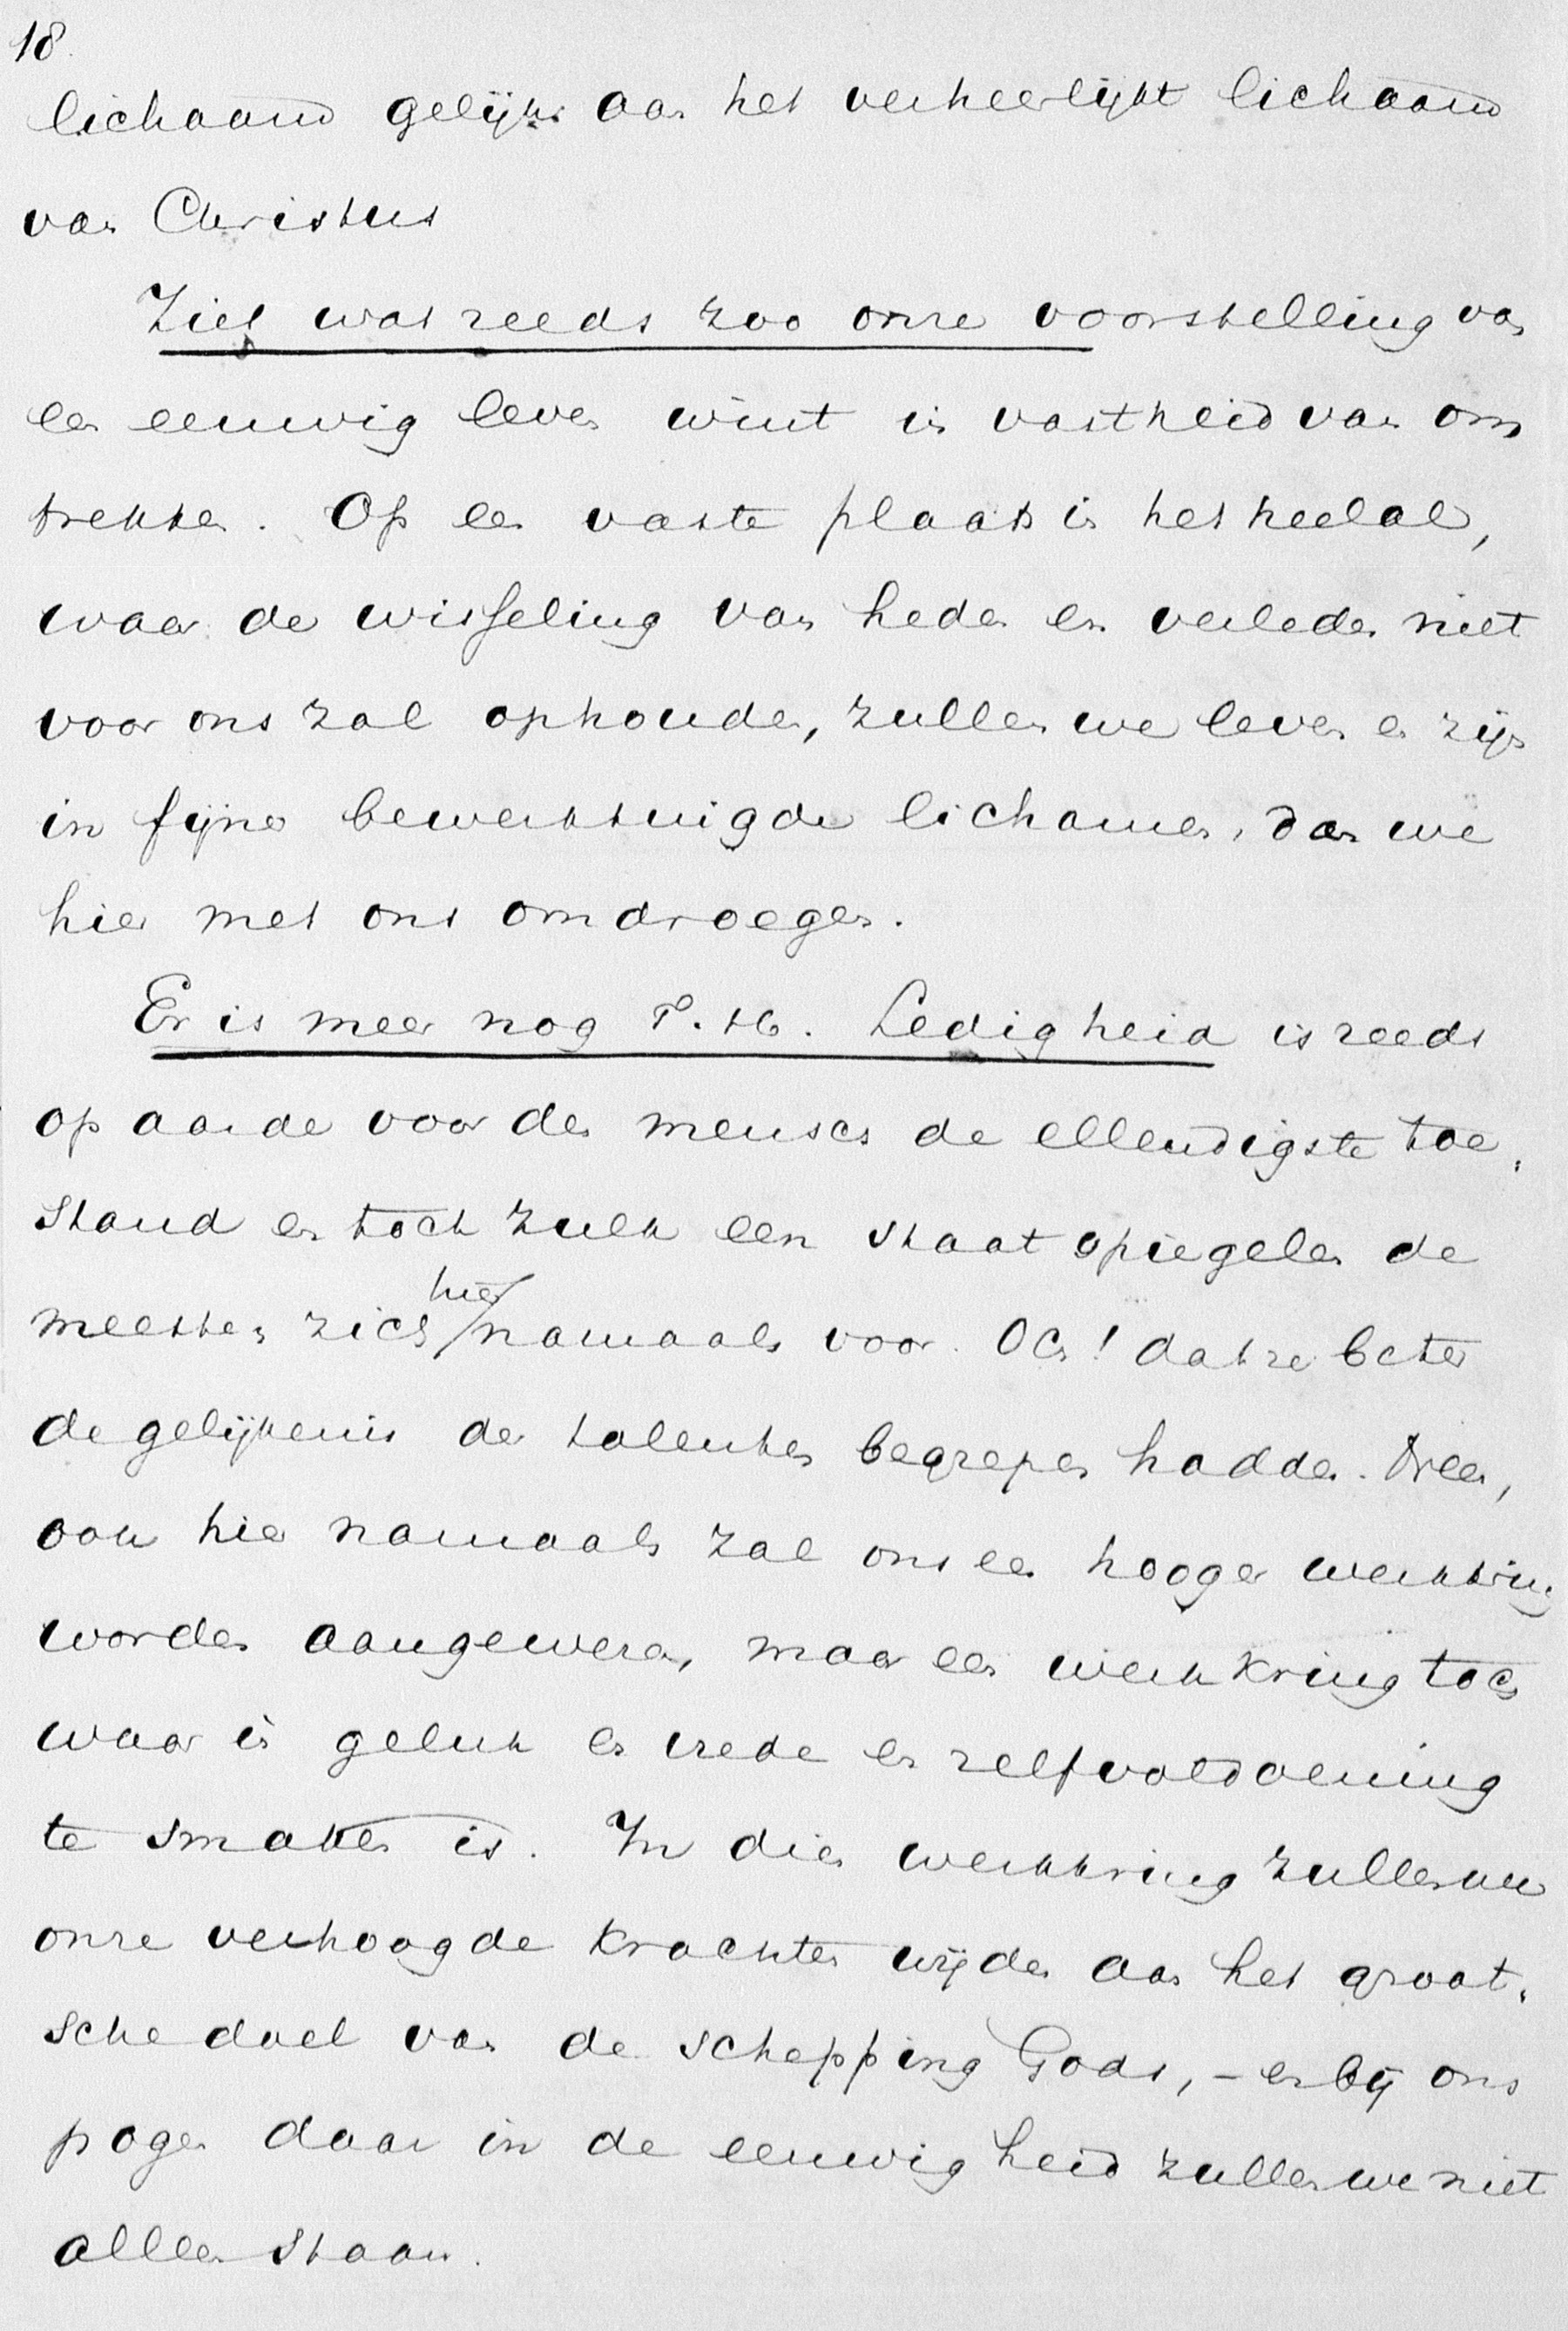 18.
lichaam gelijk aan het verheerlijkt lichaam
van Christus
Ziet wat reeds zoo onze voorstelling van
een eeuwig leven wint in vastheid van om
trekken. Op een vaste plaats in het heelal,
waar de wisseling van heden en verleden niet
voor ons zal ophouden, zullen we leven en zijn
in fijner bewerktuigde lichamen, dan we
hier met ons omdroegen.
Er is meer nog T. H. Ledigheid is reeds
op aarde voor den mensch de ellendigste toe-
stand en toch zulk een staat spiegelen de
meesten zich hier namaals voor. Och! dat ze beter
de gelijkenis der talenten begrepen hadden. Neen,
ook hier namaals zal ons een hooger werkkring
worden aangewezen, maar een werkkring toch
waar in geluk en vrede en zelfvoldoening
te smaken is. In dien werkkring zullen we
onze verhoogde krachten wijden aan het groot-
sche doel van de schepping Gods, – en bij ons
pogen daar in de eeuwigheid zullen we niet
alleen staan.